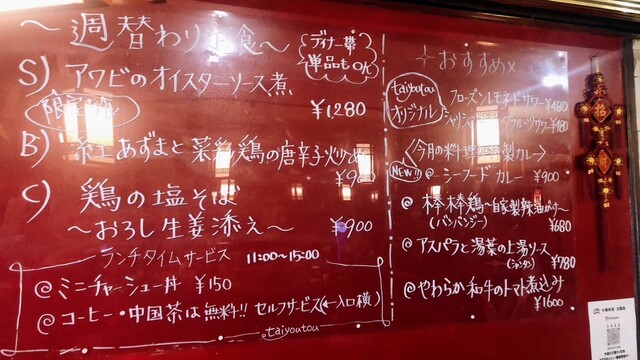 ～週替わり定食～
ディナー単品もOK
S) アワビのオイスターソース煮
¥1,280
B) 紅あずまと菜彩鶏の唐辛子炒め
C) 鶏の塩そば
～おろし生姜添え～ ¥900
ランチタイムサービス 11:00~15:00
@ミニチャーシュー丼 ¥150
@コーヒー・中国茶は無料!! セルフサービス(←入口横)
taiyoutou
おすすめ
taiyoutou
オリジナル
フローズンレモネードサワー ¥480
フルーツサワー
NEW!! @シーフードカレー ¥900
@棒棒鶏～自家製辣油がけ～
(バンバンジー) ¥680
@アスパラと湯葉の上湯ソース
(シャンタン) ¥780
@やわらか和牛のトマト煮込み
¥1600